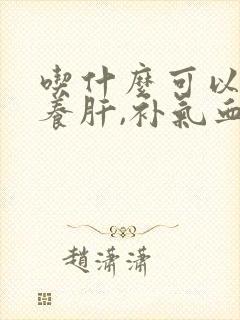 喫什麼可以
養肝,补氣血
趙瀟瀟